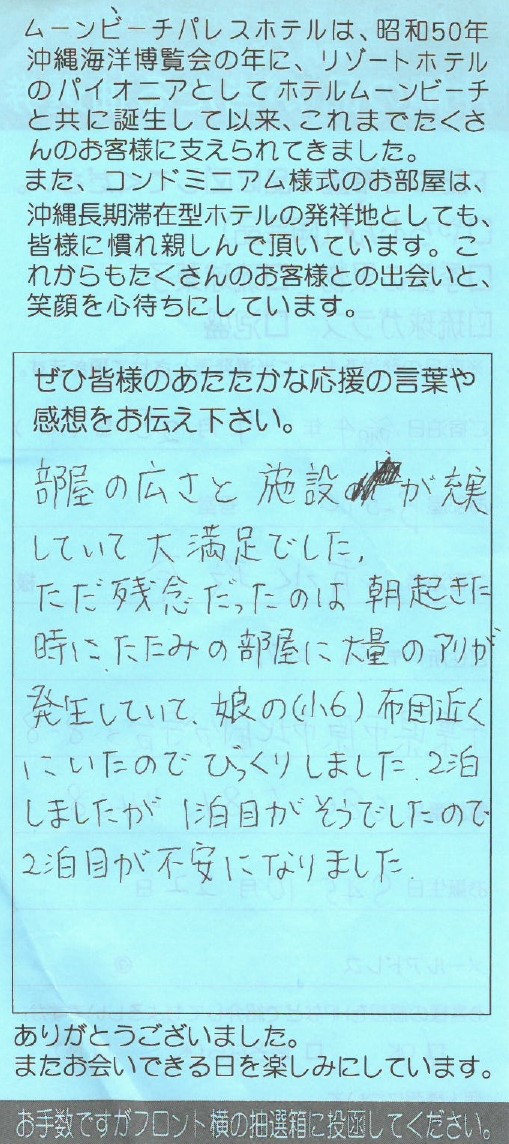 ムーンビーチパレスホテルは、昭和50年
沖縄海洋博覧会の年に、リゾートホテル
のパイオニアとしてホテルムーンビーチ
と共に誕生して以来、これまでたくさ
んのお客様に支えられてきました。
また、コンドミニアム様式のお部屋は、
沖縄長期滞在型ホテルの発祥地としても、
皆様に慣れ親しんで頂いています。こ
れからもたくさんのお客様との出会いと、
笑顔を心待ちにしています。
ぜひ皆様のあたたかな応援の言葉や
感想をお伝え下さい。
部屋の広さと施設が充実
していて大満足でした。
ただ残念だったのは朝起きた
時に、たたみの部屋に大量のアリが
発生していて、娘の(小6)布団近く
にいたのでびっくりしました。2泊
しましたが1泊目がそうでしたので
2泊目が不安になりました。
ありがとうございました。
またお会いできる日を楽しみにしています。
お手数ですがフロント横の抽選箱に投函してください。